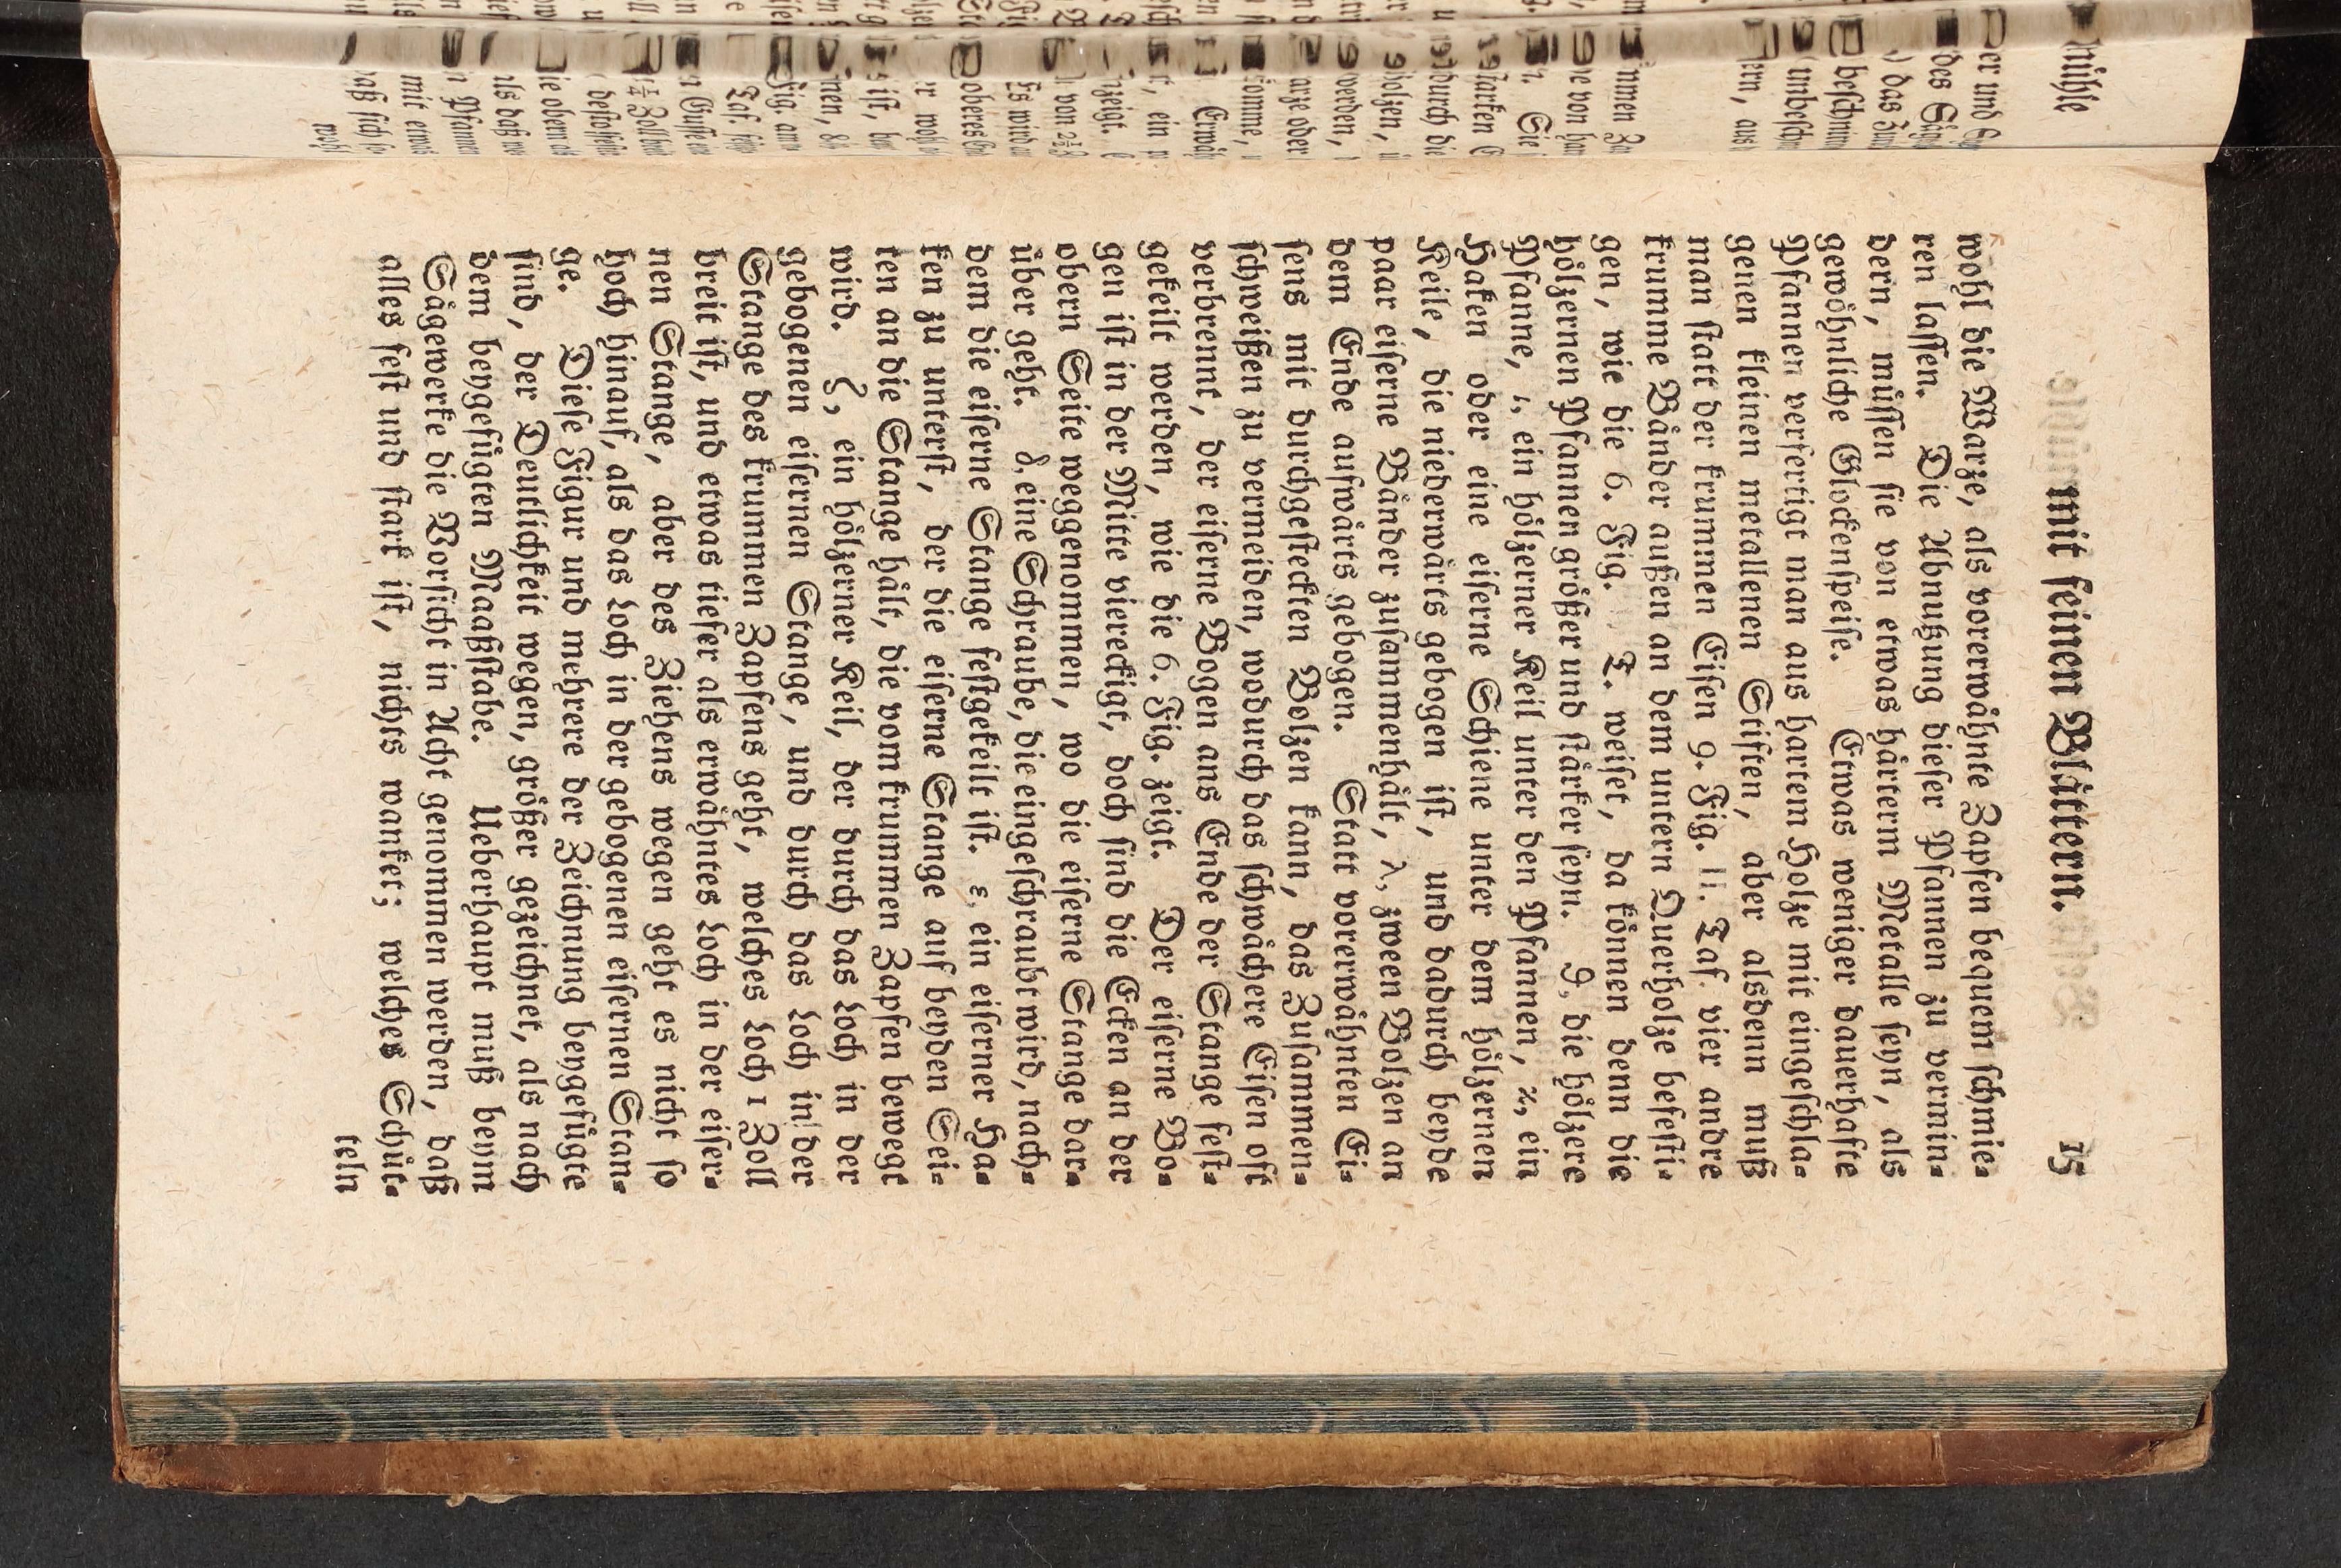 mit ſeinen Blättern. 15
wohl die Warze, als vorerwähnte Zapfen bequem ſchmie-
ren laſſen. Die Abnutzung dieſer Pfannen zu vermin-
dern, müſſen ſie von etwas härterm Metalle ſeyn, als
gewöhnliche Glockenſpeiſe. Etwas weniger dauerhafte
Pfannen verfertigt man aus hartem Holze mit eingeſchla-
genen kleinen metallenen Stiften, aber alsdenn muß
man ſtatt der krummen Eiſen 9. Fig. II. Taf. vier andre
krumme Bänder außen an dem untern Querholze befeſti-
gen, wie die 6. Fig. I. weiſet, da können denn die
hölzernen Pfannen größer und ſtärker ſeyn. ϑ, die hölzere
Pfanne, ι, ein hölzerner Keil unter den Pfannen, ϰ, ein
Haken oder eine eiſerne Schiene unter dem hölzernen
Keile, die niederwärts gebogen iſt, und dadurch beyde
paar eiſerne Bänder zuſammenhält, λ, zween Bolzen an
dem Ende aufwärts gebogen. Statt vorerwähnten Ei-
ſens mit durchgeſteckten Bolzen kann, das Zuſammen-
ſchweißen zu vermeiden, wodurch das ſchwächere Eiſen oft
verbrennt, der eiſerne Bogen ans Ende der Stange feſt-
gekeilt werden, wie die 6. Fig. zeigt. Der eiſerne Bo-
gen iſt in der Mitte viereckigt, doch ſind die Ecken an der
obern Seite weggenommen, wo die eiſerne Stange dar-
über geht. δ, eine Schraube, die eingeſchraubt wird, nach-
dem die eiſerne Stange feſtgekeilt iſt. ε, ein eiſerner Ha-
ken zu unterſt, der die eiſerne Stange auf beyden Sei-
ten an die Stange hält, die vom krummen Zapfen bewegt
wird. ζ, ein hölzerner Keil, der durch das Loch in der
gebogenen eiſernen Stange, und durch das Loch in der
Stange des krummen Zapfens geht, welches Loch 1 Zoll
breit iſt, und etwas tiefer als erwähntes Loch in der eiſer-
nen Stange, aber des Ziehens wegen geht es nicht ſo
hoch hinauf, als das Loch in der gebogenen eiſernen Stan-
ge. Dieſe Figur und mehrere der Zeichnung beygefügte
ſind, der Deutlichkeit wegen, größer gezeichnet, als nach
dem beygefügten Maaßſtabe. Ueberhaupt muß beym
Sägewerke die Vorſicht in Acht genommen werden, daß
alles feſt und ſtark iſt, nichts wanket; welches Schüt-
teln